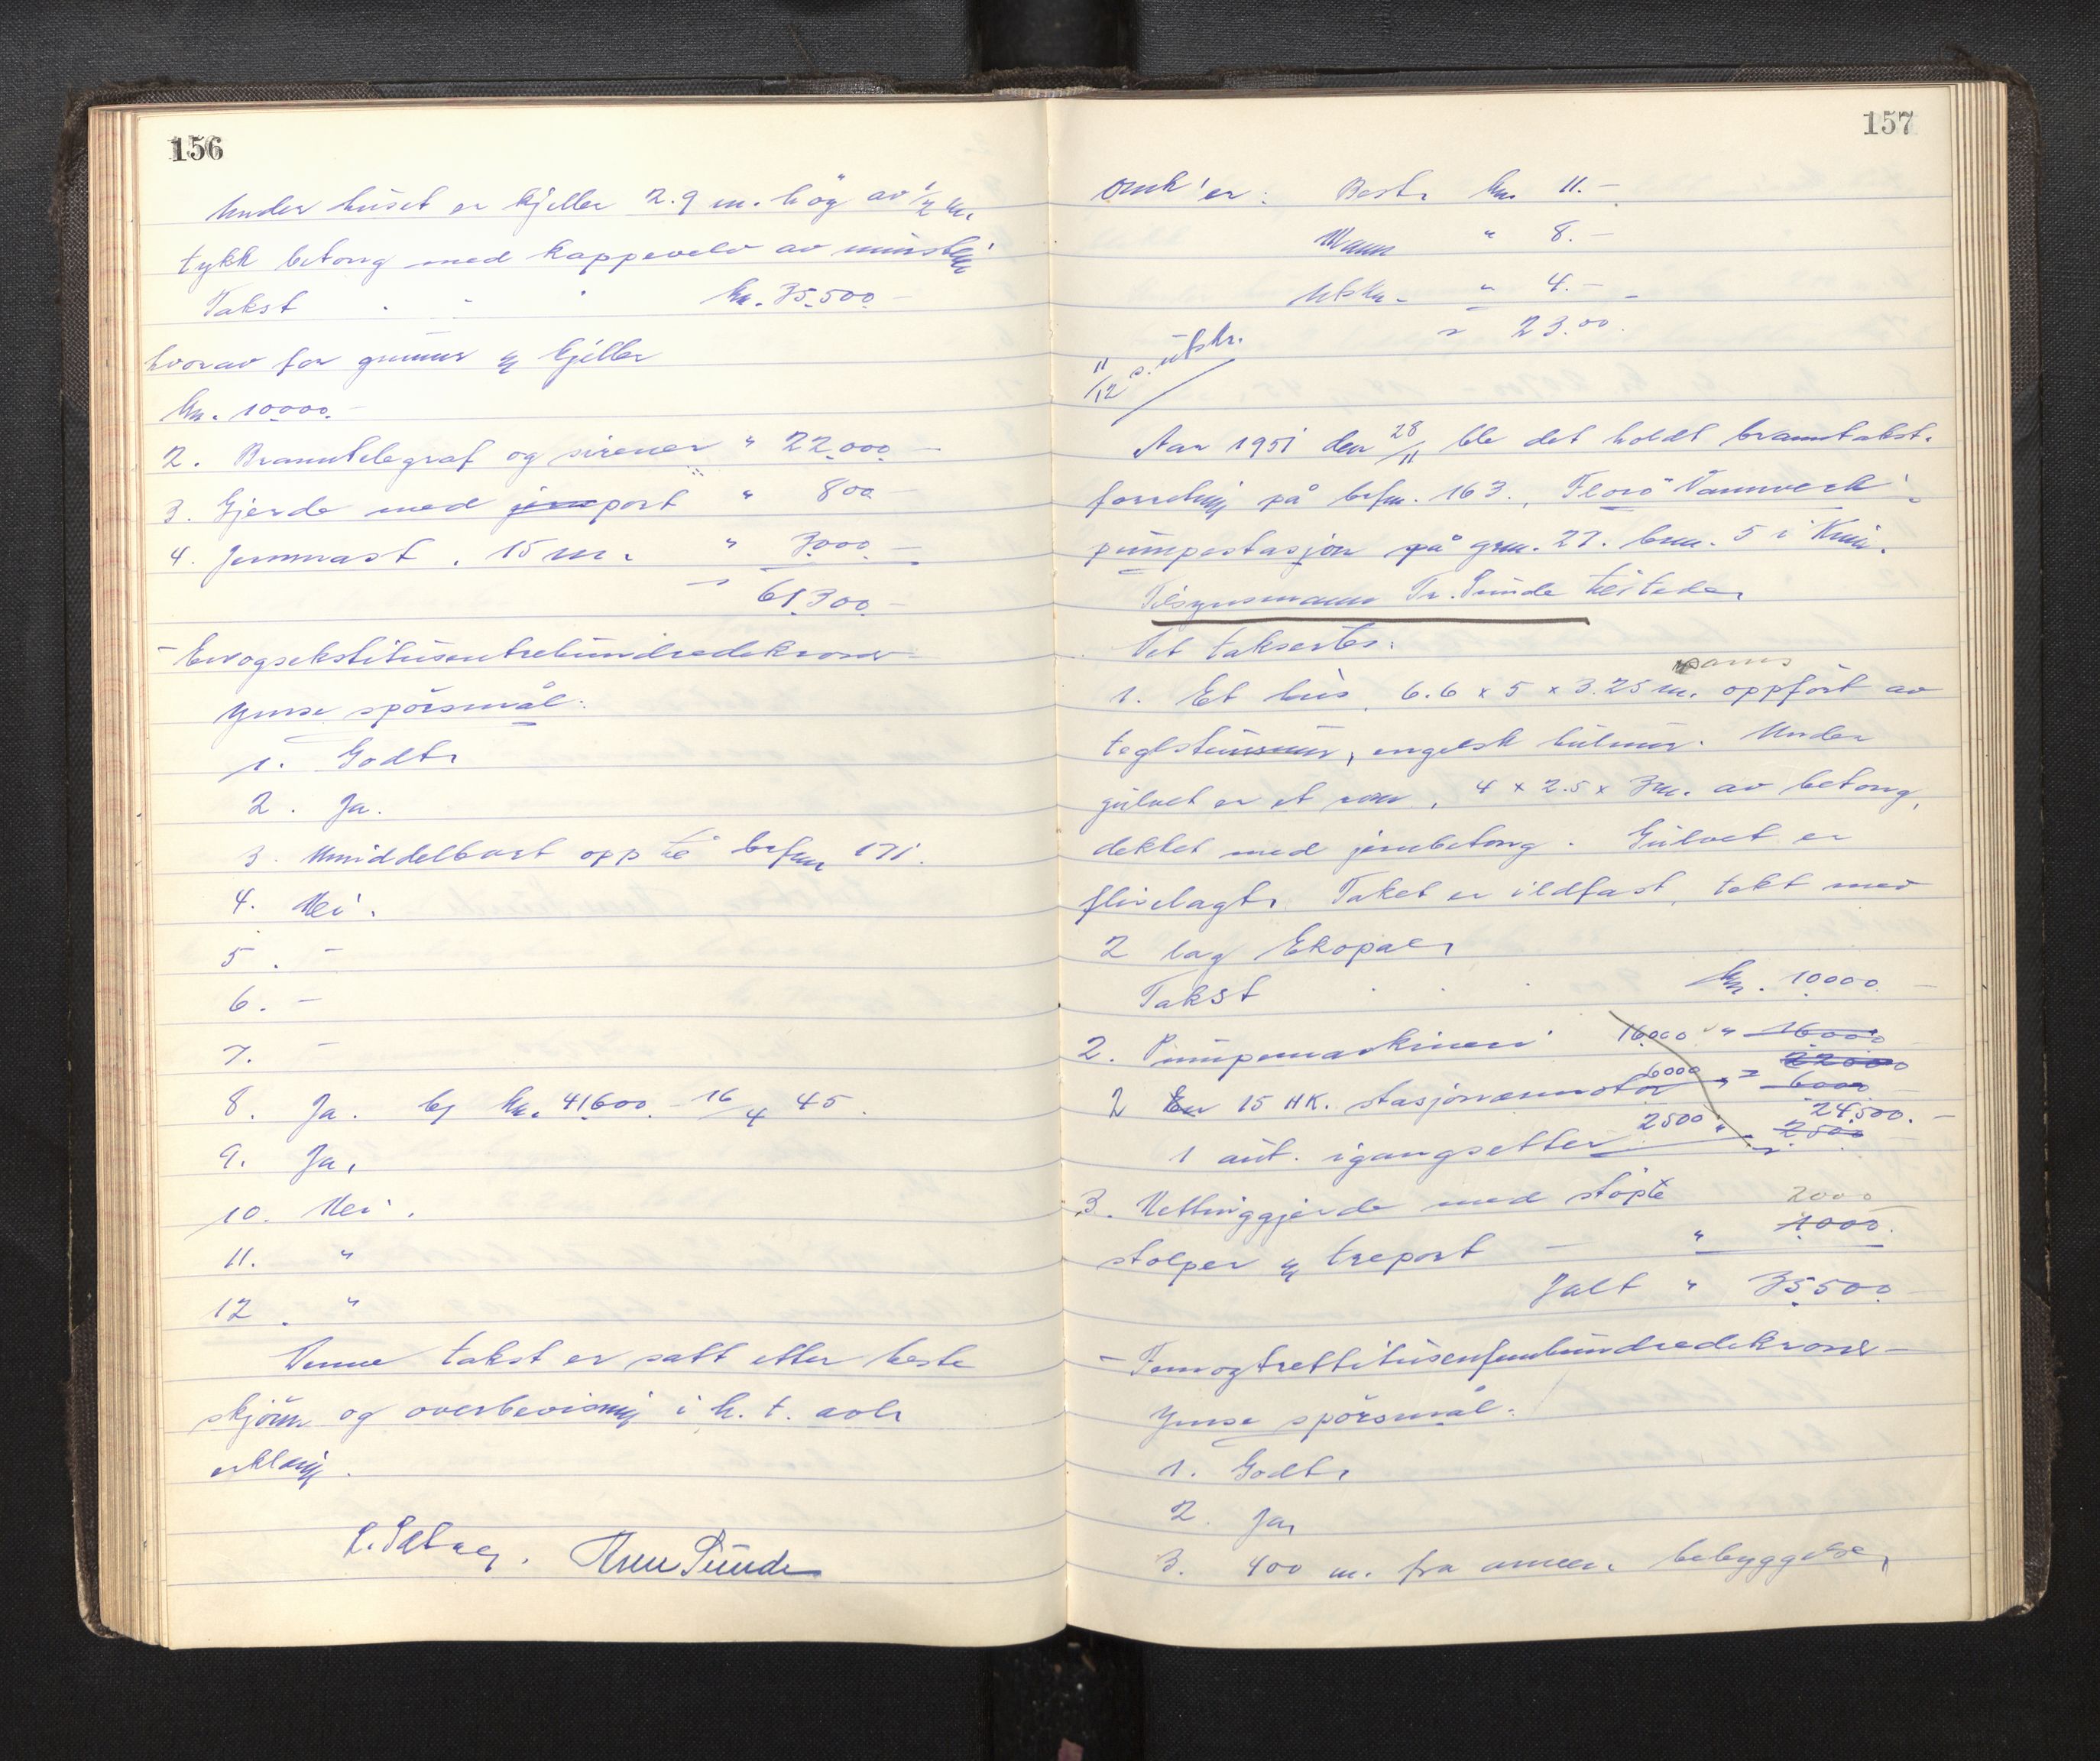 156
Under huset er kjeller 2.9 m. høg av 1/2 m.
tykk betong med kappevelv av murstein
Takst . . . kr. 35.500 –
hvorav for grunnmur og kjeller
kr. 10000. –
2. Branntelegraf og sirener " 22.000 –
3. Gjerde med jernport " 800 –
4. Jernmast, 15 m. " 3000 –
61.300 –
– Enogsekstitusentrehundredekroner –
Ymse spörsmål:
1. Godt.
2. Ja.
3. Umiddelbart opp til brfnr 171.
4. Nei.
5. –
6. –
7. –
8. Ja. kr. 41600 – 16/4 45.
9. Ja.
10. Nei.
11. "
12. "
Denne takst er satt etter beste
skjönn og overbevisning i h. t. avlt
erklæring.
157
Omk'er: Best. kr. 11. –
Mann " 8. –
Utskr. " 4. –
23.00
11/12 s. utskr.
Aar 1951 den 28/11 ble det holdt branntakst-
forretning på brfnr. 163, Florö Vannverk
pumpestasjon på gnr. 27. bnr. 5 i Kinn.
Tilsynsmann Tr. Sunde tilstede.
Det taksertes:
1. Et hus, 6.6 x 5 x 3.25 m. oppfört av
teglsteinsmur, engelsk hulmur. Under
gulvet er et rom, 4 x 2.5 x 3 m. av betong,
dekket med jernbetong. Gulvet er
fliselagt. Taket er ildfast, tekt med
2 lag Ekopal.
Takst . . . kr. 10000 –
2. Pumpemaskineri 16000 " 16000
22000
2 En 15 HK. stasjonærmotor 6000 " 6000
24.500. –
1 aut. igangsetter 2500 " 2500
3. Nettinggjerde med stöpte 2000
stolper og treport – " 1000.
Ialt " 35500 –
– Femogtrettitusenfemhundredekroner –
Ymse spörsmål:
1. Godt.
2. Ja.
3. 400 m. fra annen bebyggelse.